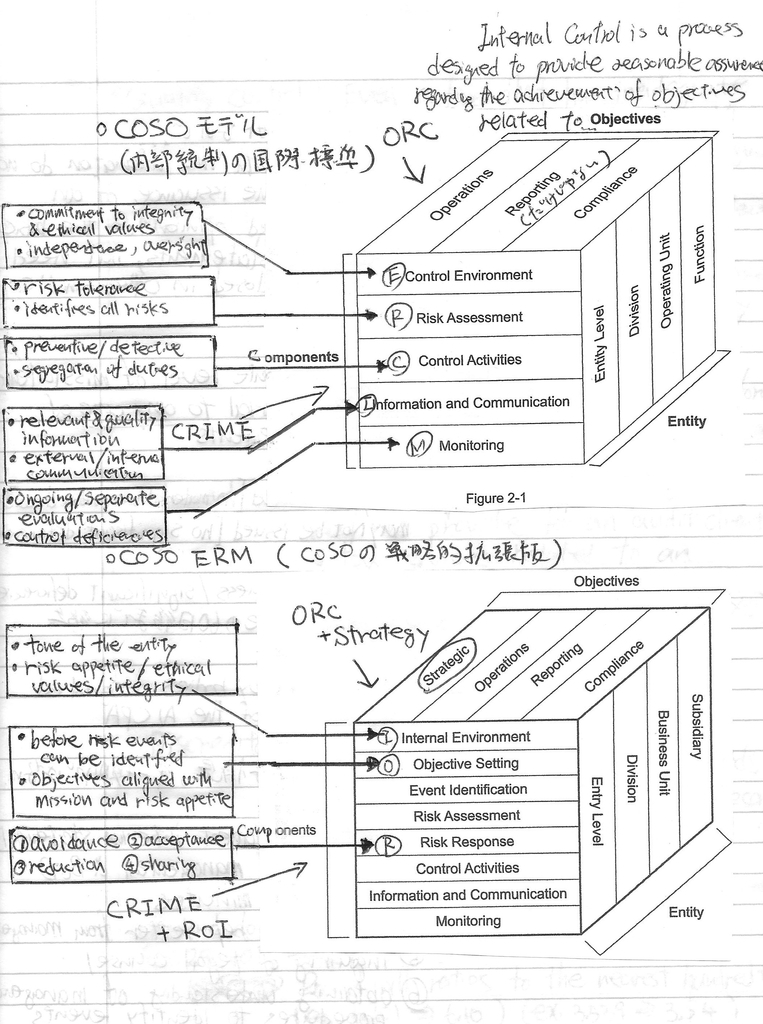 Internal Control is a process
designed to provide reasonable assurance
regarding the achievement of objectives
related to
• COSO モデル
(内部統制の国際標準)
ORC
Objectives
Operations
Reporting
Compliance
• commitment to integrity
& ethical values
• independence, oversight
• risk tolerance
• identifies all risks
• preventive/detective
• segregation of duties
• relevant & quality
information
• external/internal
communication
• ongoing/separate
evaluations
• control deficiencies
Components
CRIME
E Control Environment
R Risk Assessment
C Control Activities
I Information and Communication
M Monitoring
Entity Level
Division
Operating Unit
Function
Entity
Figure 2-1
• COSO ERM (COSOの戦略的拡張版)
ORC
+Strategy
Objectives
Strategic
Operations
Reporting
Compliance
• tone of the entity
• risk appetite/ethical
values/integrity
• before risk events
can be identified
• objectives aligned with
mission and risk appetite
① avoidance ② acceptance
③ reduction ④ sharing
Components
CRIME
+ ROI
I Internal Environment
O Objective Setting
Event Identification
Risk Assessment
R Risk Response
Control Activities
Information and Communication
Monitoring
Entry Level
Division
Business Unit
Subsidiary
Entity